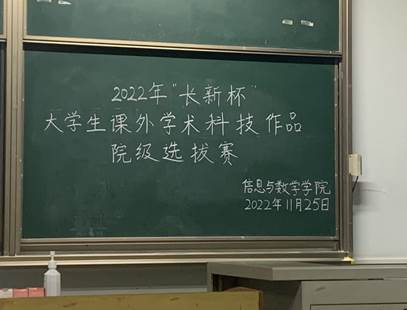 2022年"长新杯"
大学生课外学术科技作品
院级选拔赛
信息与数学学院
2022年11月25日